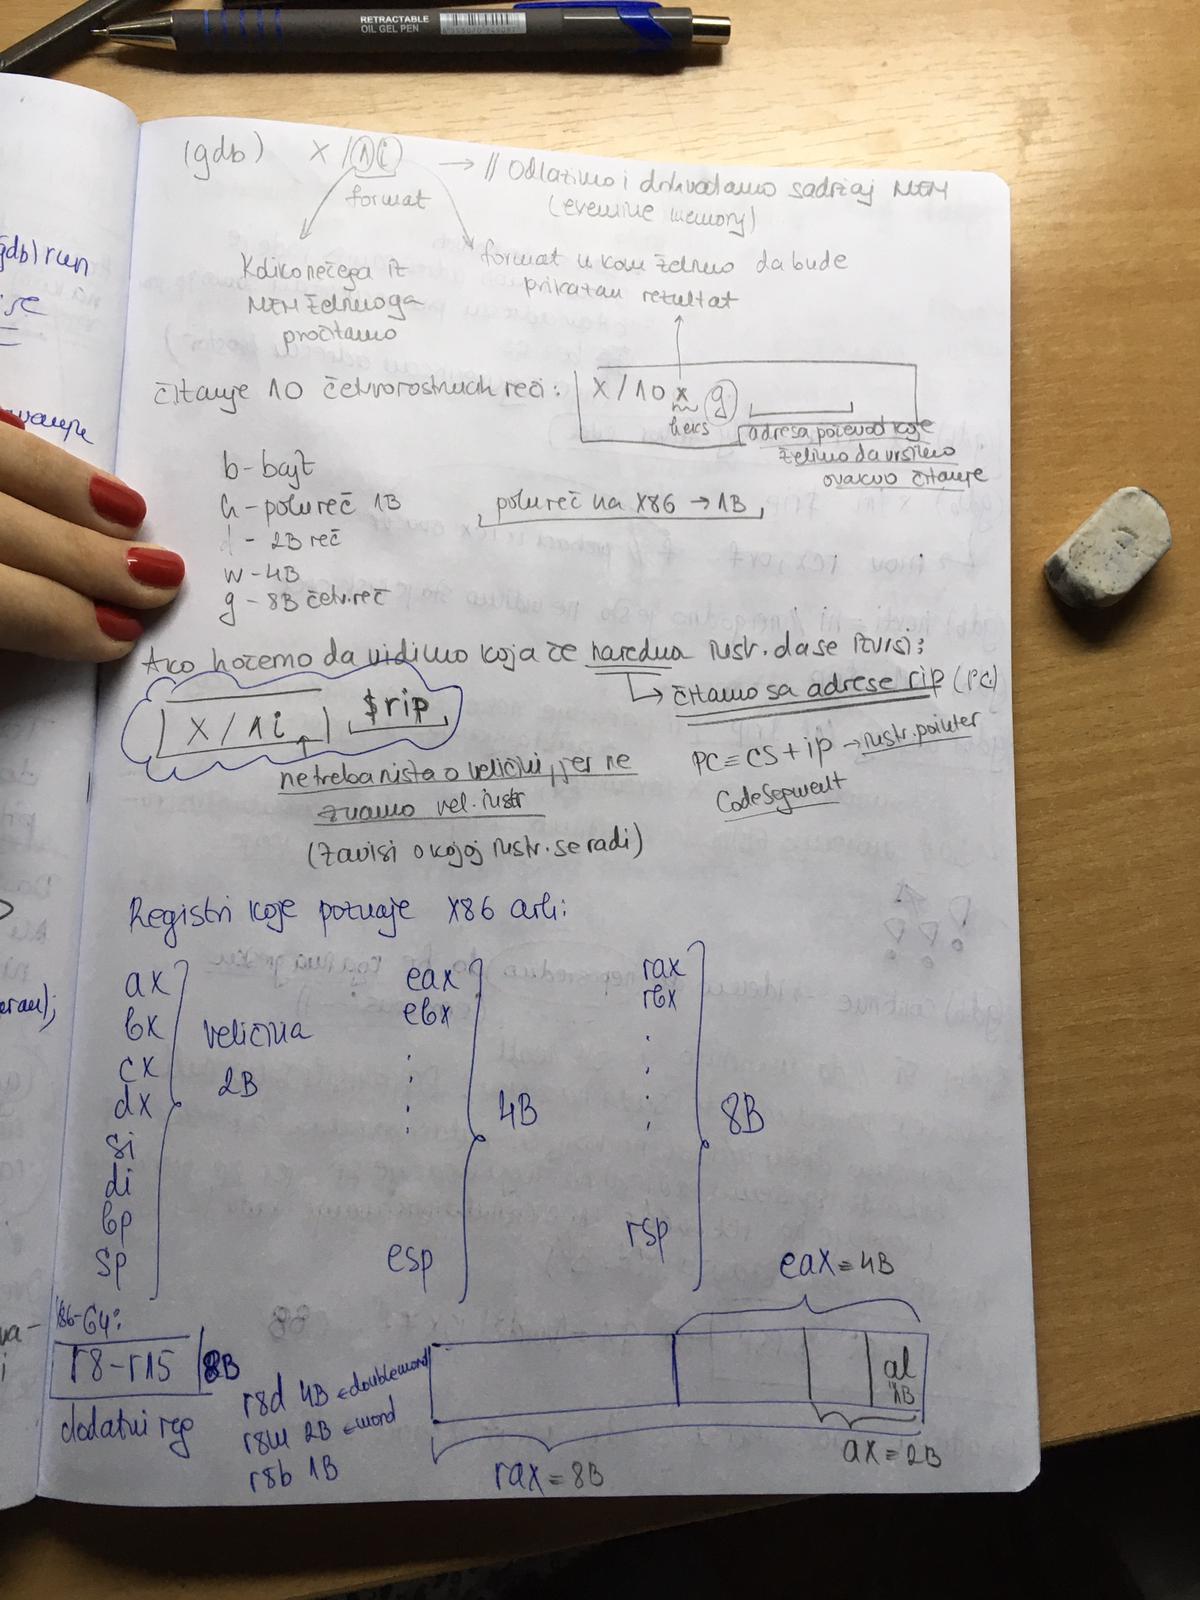 RETRACTABLE
OIL GEL PEN
(gdb) x /1i → // Odlazimo i dohvatamo sadržaj MEM
format
Koliko nečega iz
MEM želimo ga
pročitamo
format u kom želimo da bude
prikazan rezultat
čitanje 10 četvorostrukih reči: x/10 x g
heks
adresa počev od koje
želimo da vršimo
ovakvo čitanje
b - bajt
h - polureč 1B
polureč na x86 → 1B
d - 2B reč
w - 4B
g - 8B četv.reč
Ako hoćemo da vidimo koja će naredna instr. da se izvrši:
→ čitamo sa adrese rip (PC)
x / 1i $rip
PC = CS + ip → instr. pointer
Code Segment
ne treba ništa o veličini, jer ne
znamo vel. instr
(zavisi o kojoj instr. se radi)
Registri koje poznaje x86 arh:
ax
bx
cx
dx
si
di
bp
sp
veličina
2B
eax
ebx
esp
4B
rax
rbx
rsp
8B
x86-64:
r8-r15 8B
dodatni reg
r8d 4B ← doubleword
r8w 2B ← word
r8b 1B
eax = 4B
al
1B
ax = 2B
rax = 8B
(gdb) run